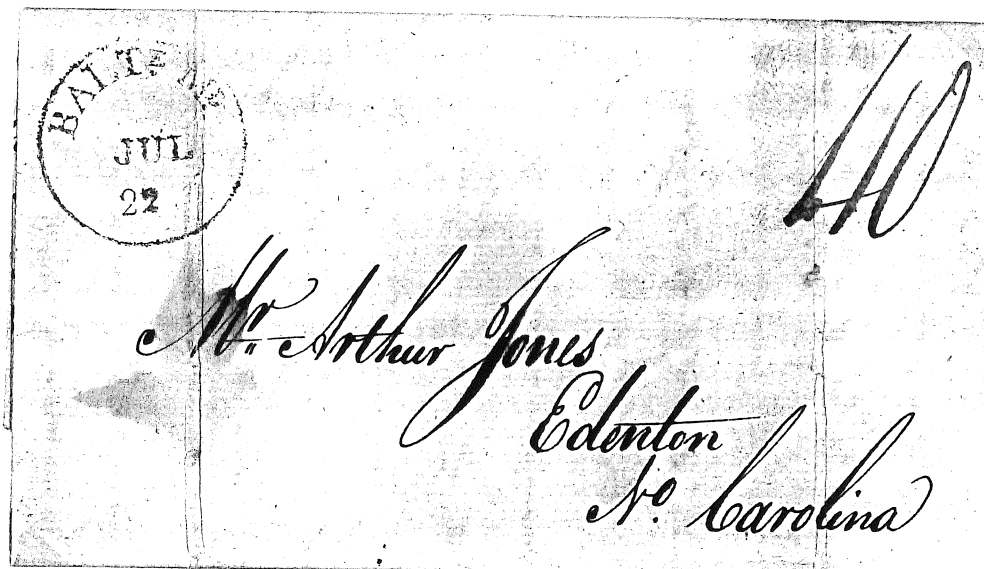 BALT. Md
JUL
22
40
Mr. Arthur Jones
Edenton
No. Carolina